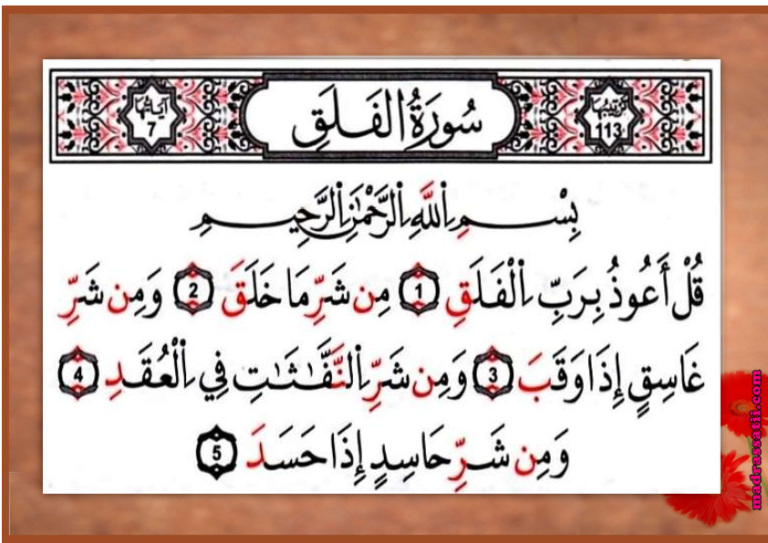 ترتيبها 113 سُورَةُ الفَلَقِ آياتها 7
بِسْمِ اِ۬للَّهِ اِ۬لرَّحْمَٰنِ اِ۬لرَّحِيمِ
قُلْ أَعُوذُ بِرَبِّ اِ۬لْفَلَقِ 1 مِن شَرِّ مَا خَلَقَ 2 وَمِن شَرِّ
غَاسِقٍ إِذَا وَقَبَ 3 وَمِن شَرِّ اِ۬لنَّفَّٰثَٰتِ فِي اِ۬لْعُقَدِ 4
وَمِن شَرِّ حَاسِدٍ إِذَا حَسَدَ 5
madrassatii.com